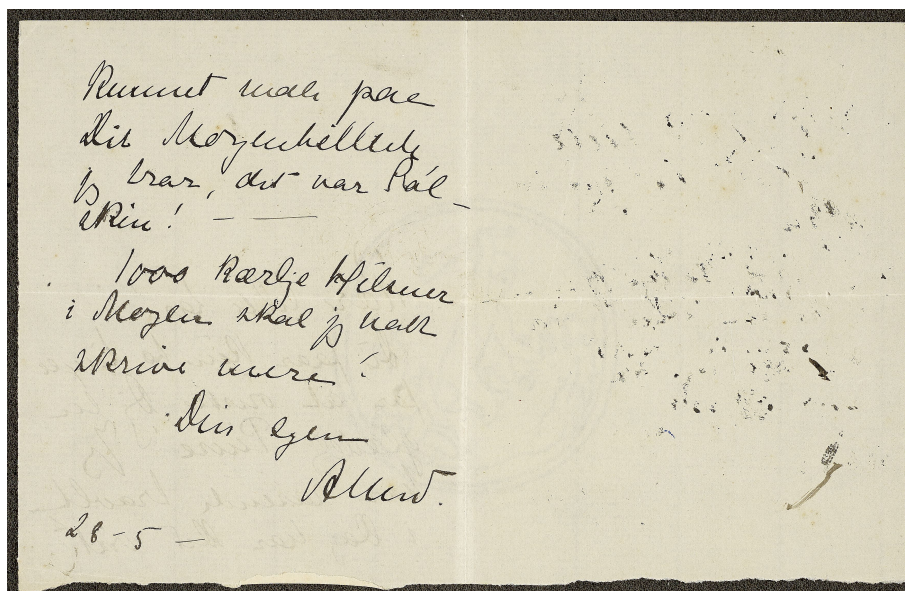 kunnet male paa
Dit Morgenbillede
jeg tror, det var Sól-
skin! — —
1000 Kærlige Hilsner
i Morgen skal jeg nok
skrive mere!
Din egen
28-5-